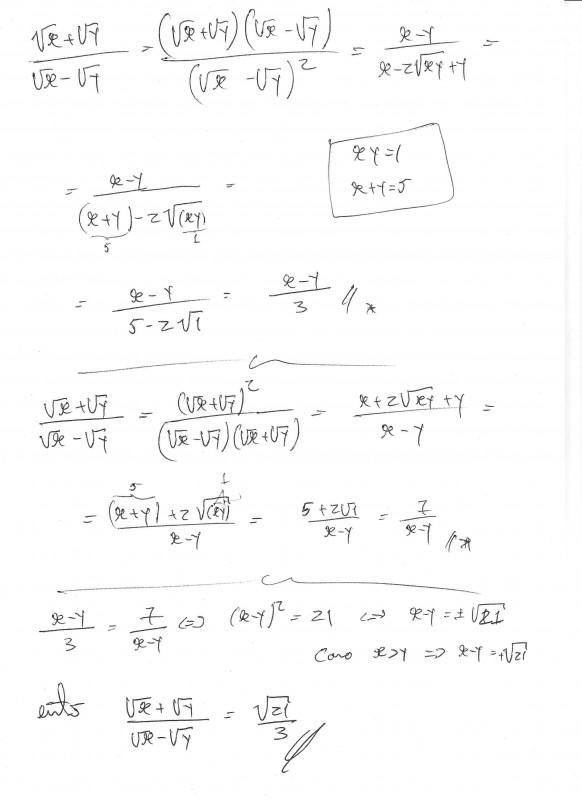 (√x+√y)/(√x-√y) = (√x+√y)(√x-√y)/(√x-√y)² = (x-y)/(x-2√xy+y) =
xy=1
x+y=5
= (x-y)/((x+y)-2√(xy)) =
5 1
= (x-y)/(5-2√1) = (x-y)/3 // *
(√x+√y)/(√x-√y) = (√x+√y)²/((√x-√y)(√x+√y)) = (x+2√xy+y)/(x-y) =
5 1
= ((x+y)+2√(xy))/(x-y) = (5+2√1)/(x-y) = 7/(x-y) // *
(x-y)/3 = 7/(x-y) <=> (x-y)²=21 <=> x-y=±√21
Como x>y => x-y=+√21
então (√x+√y)/(√x-√y) = √21/3 //